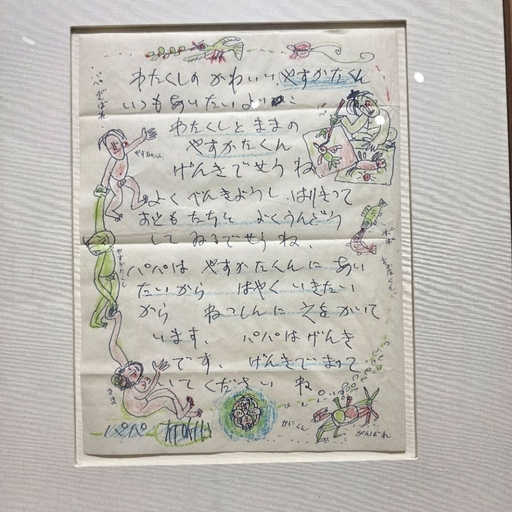 わたくしの かわいい やすかたくん
いつも あいたいよ
わたくしと ままの
やすかたくん
げんきでせうね
よく べんきようし はりきって
おともだちと よくうんどう
して ゐるでせうね、
パパは やすかたくんに あい
たいから はやく いきたい
から ねっしんに えを かいて
います、 パパは げんき
です、 げんきで まって
いて ください ね
パパ
かにくん
がんばれ